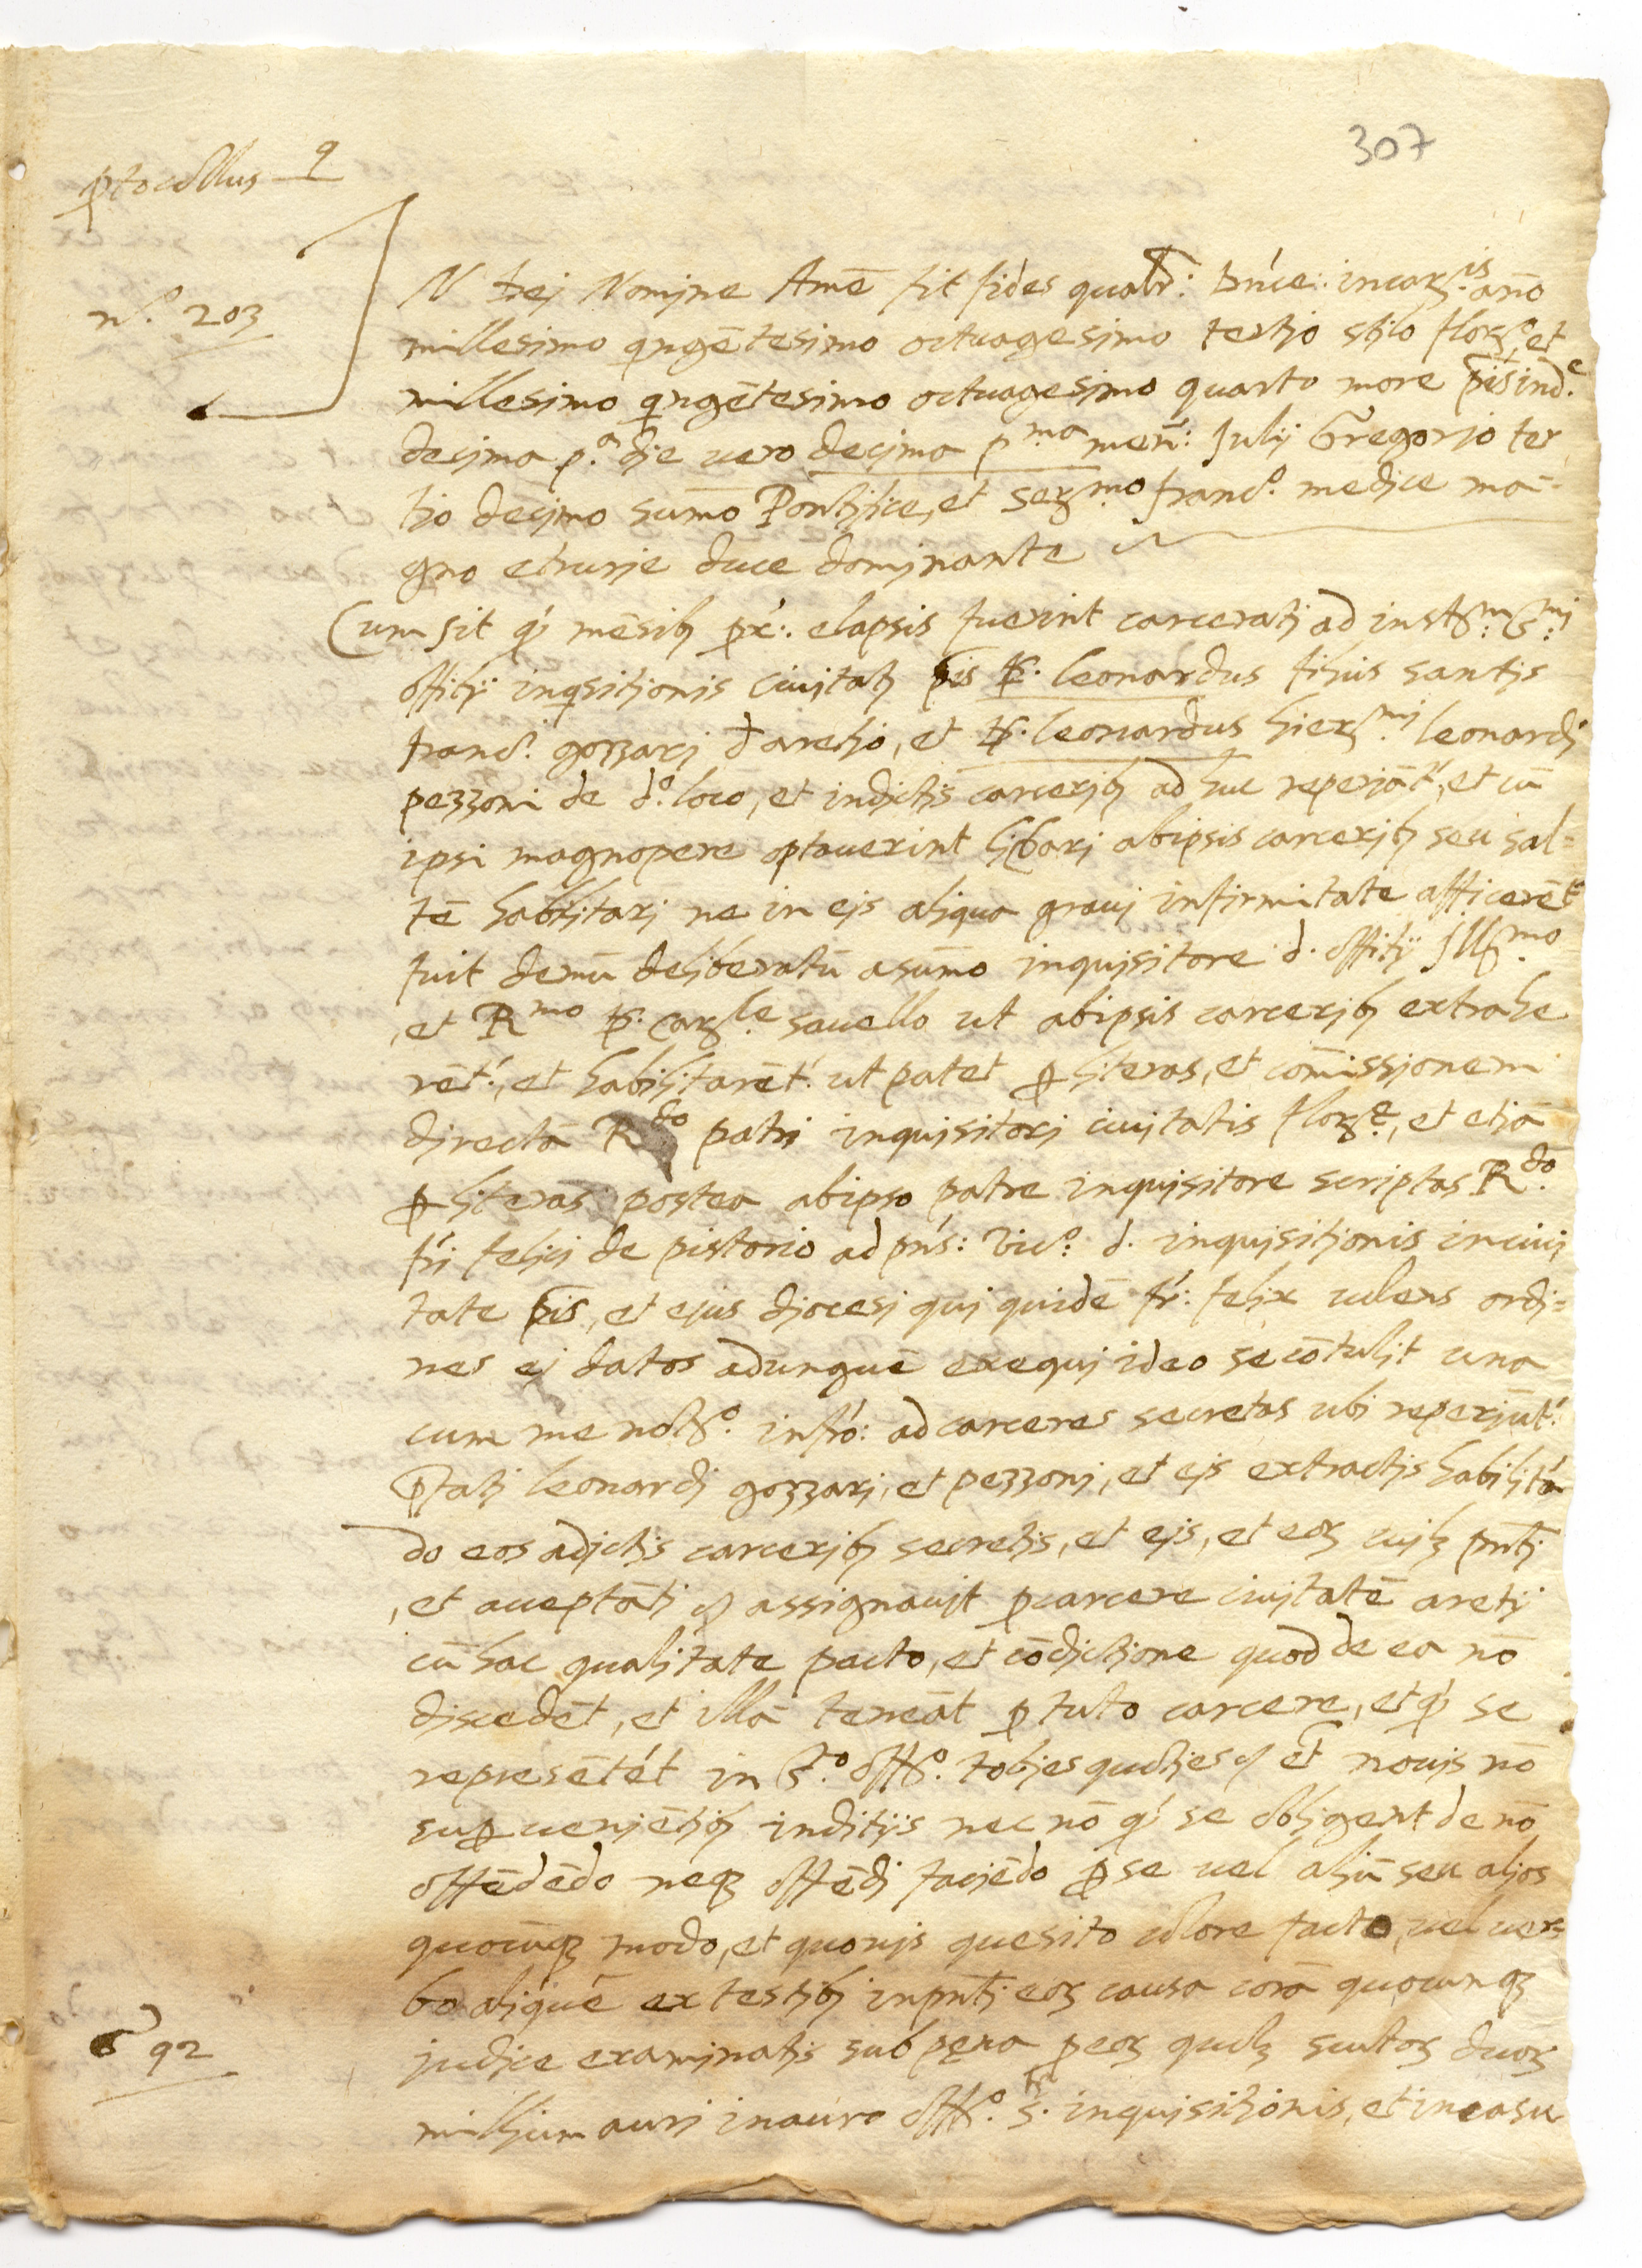 307
ptocollus 9
n.º 203
IN Dej Nomjne Amē fit fides qualr: Dn̄ce: incarn.is añō
millesimo qngētesimo octuagesimo tertjo stjlo flor.e, et
millesimo qngētesimo octuagesimo quarto more pis ind.e
decjma p.a dje uero decjma p.ma men: Julij Gregorjo ter
tjo decjmo sum̄o Pontjfice, et ser.mo franc.º medjce ma-
gno etrurje duce domjnante
Cum sit q' mēsib; px: elapsis fuerint carceratj ad inst.m S.mj
offitij inqsitjonis ciujtat; pis D. leonardus filius santjs
franc.i gozzarj d aretjo, et D. leonardus hier.mj leonardj
pezzoni de d.º loco, et in djctjs carcerjb; ad huc reperjāt', et cū
ipsi magnopere optauerint ljbarj ab ipsis carcerjb; seu sal=
tē habilitarj ne in ejs aliqua grauj infirmitate afficerēt'
fuit demū deliberatū a sum̄o inquisitore d. offitij Jll.mo
et R.mo D. Car.le sauello ut ab ipsis carcerjb; extrahe
rēt', et habilitarēt' ut patet p literas, et com̄issjonem
djrectā R.do patri inqujsitorj ciujtatis flor.e, et etjā
p literas postea ab ipso patre inqujsitore scriptas R.do
fri felicj de pistorio ad pns: Vic.º d. inqujsitjonis in ciuj
tate pis, et ejus djocesj quj quidē fr: felix uolens ordj=
nes ej datos ad unguē exequj ideo se cōtulit una
cum me not.º infro: ad carceres secretas ubj reperjūt':
Pfatj leonardj gozzarj, et pezzonj, et ejs extractjs habilitā
do eos a djctjs carcerjb; secretjs, et ejs, et eor; cujl; pntj
, et acceptātj assignauit p carcere ciujtatē aretij
cū hac qualitate pacto, et cōdjctjone quod de ea nō
discedēt, et illā teneāt p tuto carcere, et q' se
represētēt in S.to off.º totjes quotjes et nouis nō
sup uenjētjb; inditijs nec nō q' se obligent de nō
offēdēdo neq; offēdj facjēdo p se uel aliū seu aljos
quocūq; modo, et quoujs quesito colore facto, uel uer=
bo aliquē ex testjb; in pntj eor; causa corā quocunq;
judjce examinatjs sub pęna p eor; quol; scutor; duor;
milljum auri in auro off.º S. inquisitjonis, et in casu
c 92